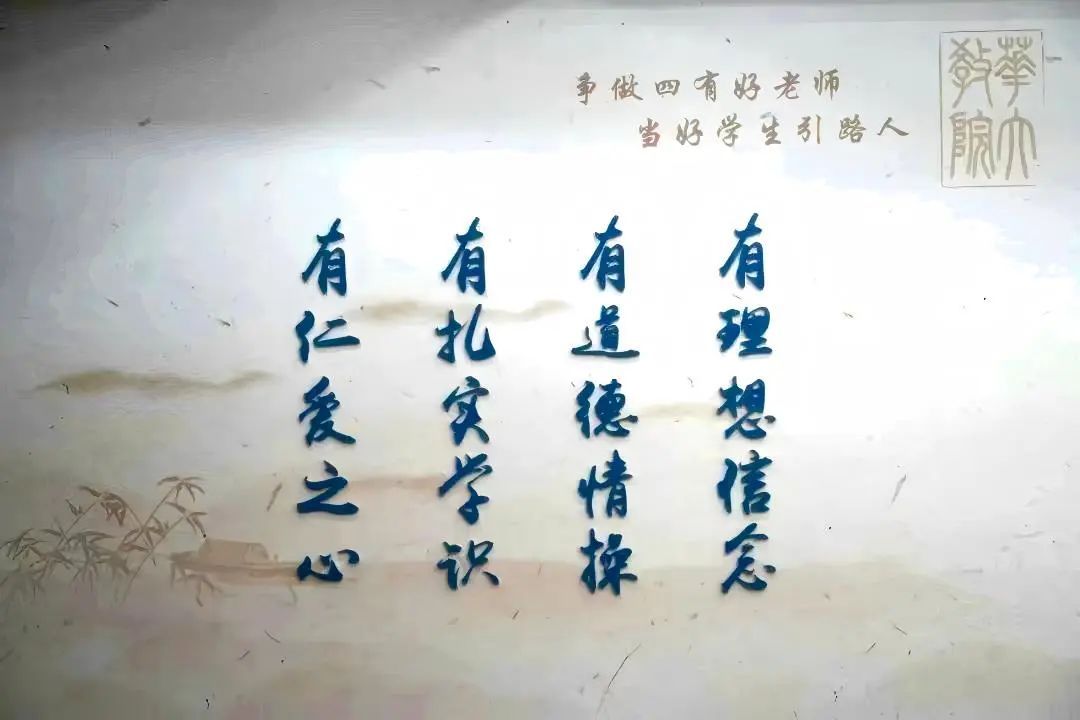 争做四有好老师
当好学生引路人
華大
教院
有理想信念
有道德情操
有扎实学识
有仁爱之心